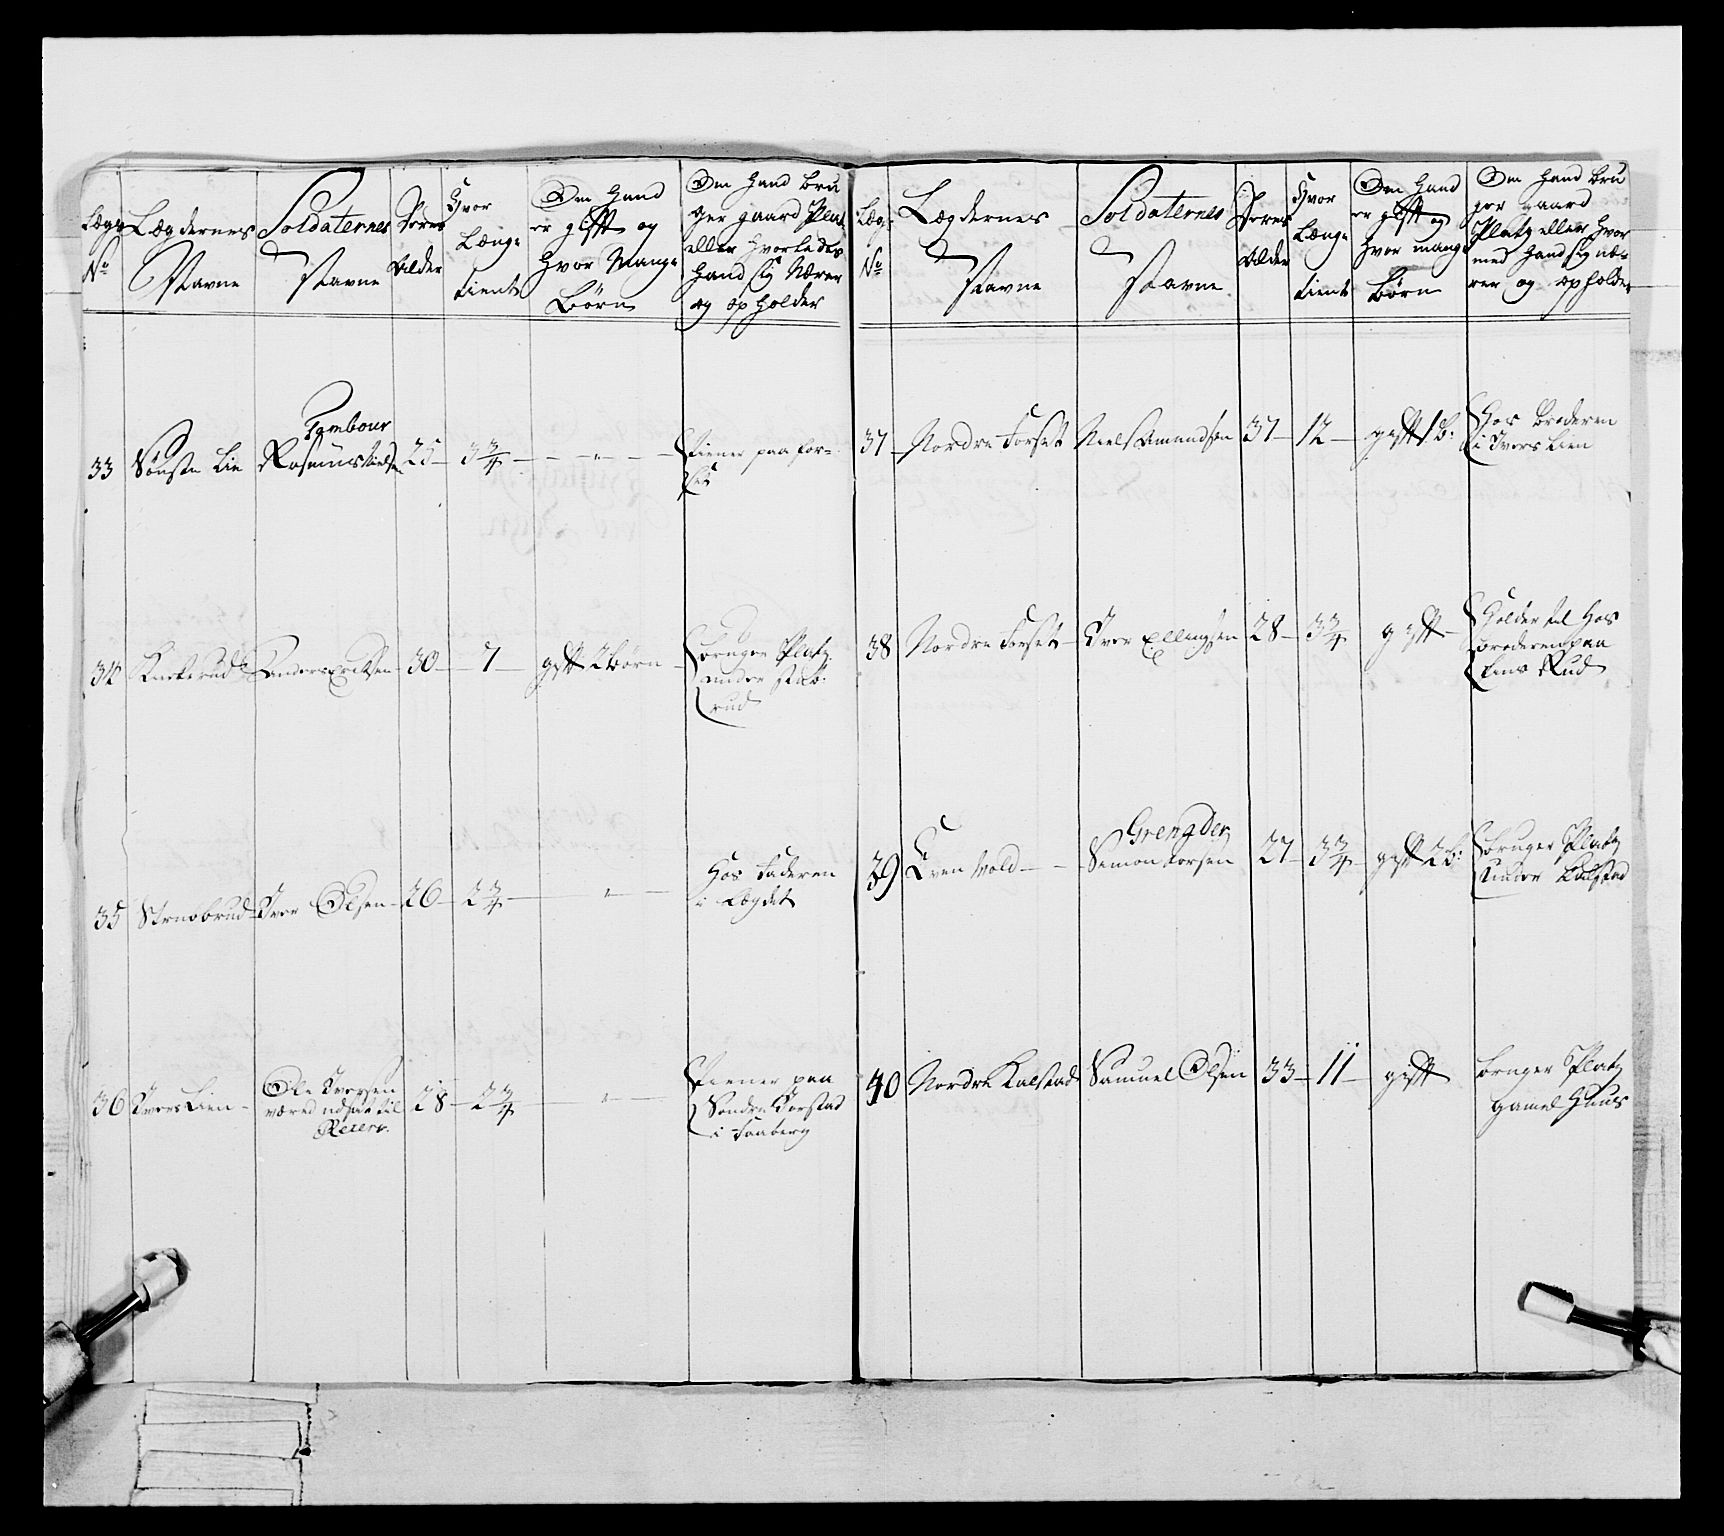 Lægs No
Lægdernes Navne
Soldaternes Navne
Deres Alder
Hvor Længe tient
Om Hand er gift og Hvor Mange Børn
Om Hand bruger gaard Platz eller Hvorledes Hand sig Nærer og opholder
33 Lie Tambour Rasmus 25 3 3/4 „ Tiener paa Forset
34 Anders Erichsen 30 7 gift 2 børn bruger Platz under rud
35 Iver Olsen 26 2 3/4 „ Hos Faderen i Lægdet
36 Ivers Lien Ole Iversen været udsat til Reserv. 28 2 3/4 „ Tiener paa Søndre Jorstad i Faaberg
Læg: No
Lægdernes Navne
Soldaternes Navne
Deres Alder
Hvor Længe tient
Om Hand er gift og Hvor mange Børn
Om Hand bruger gaard Platz eller Hvormed Hand sig nærer og opholder
37 Nordre Forset Niels Amundsen 37 12 gift 1 b: Hos Broderen i Ivers Lien
38 Nordre Forset Iver Ellingsen 28 3 3/4 gift Holder til Hos broderen paa Rud
39 Even Vold Grengder Simon 27 3 3/4 gift 2 b: bruger Platz under
40 Nordre Kalstad Samuel Olsen 33 11 gift bruger Platz Gamel Huus